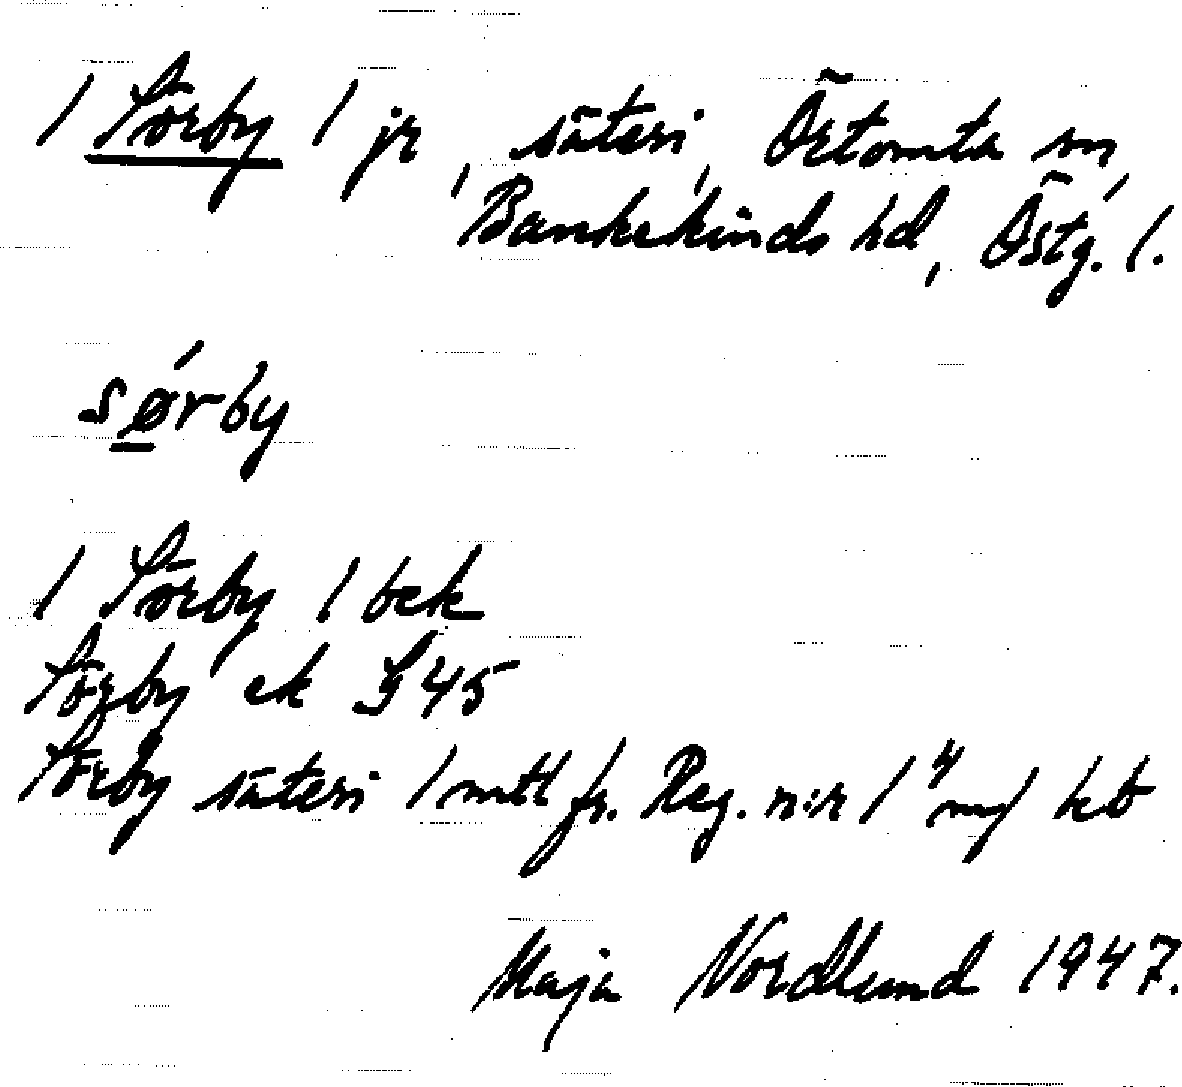 1 Sörby 1 jr, säteri, Örtomta sn,
Bankekinds hd, Östg. l.
sǿ̲rby
1 Sörby 1 bek
Sörby ek J 45
Sörby säteri 1 mtl fr. Reg. n:r 1⁴ mf
Maja Nordlund 1947.